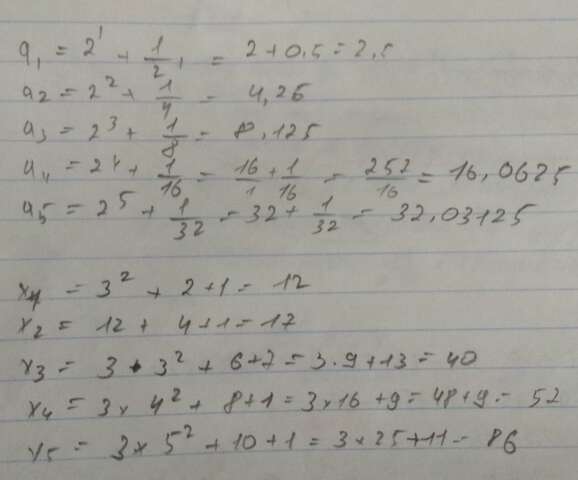 a₁ = 2¹ + 1/2¹ = 2 + 0,5 = 2,5
a₂ = 2² + 1/4 = 4,25
a₃ = 2³ + 1/8 = 8,125
a₄ = 2⁴ + 1/16 = 16/1 + 1/16 = 252/16 = 16,0625
a₅ = 2⁵ + 1/32 = 32 + 1/32 = 32,03125
x₁ = 3² + 2 + 1 = 12
x₂ = 12 + 4 + 1 = 17
x₃ = 3 · 3² + 6 + 7 = 3 · 9 + 13 = 40
x₄ = 3 × 4² + 8 + 1 = 3 × 16 + 9 = 48 + 9 = 52
x₅ = 3 × 5² + 10 + 1 = 3 × 25 + 11 = 86